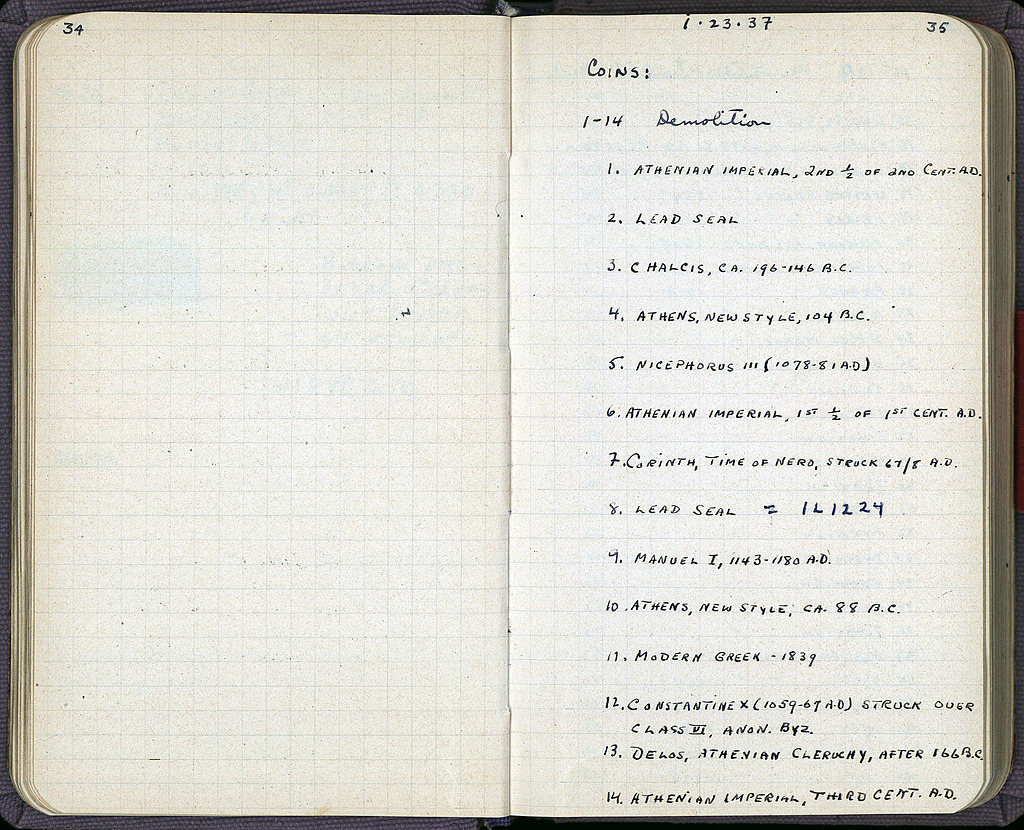 34
1·23·37
35
COINS:
1-14 Demolition
1. ATHENIAN IMPERIAL, 2ND ½ OF 2ND CENT. A.D.
2. LEAD SEAL
3. CHALCIS, CA. 196-146 B.C.
4. ATHENS, NEW STYLE, 104 B.C.
5. NICEPHORUS III (1078-81 A.D)
6. ATHENIAN IMPERIAL, 1ST ½ OF 1ST CENT. A.D.
7. CORINTH, TIME OF NERO, STRUCK 67/8 A.D.
8. LEAD SEAL = IL 1224
9. MANUEL I, 1143-1180 A.D.
10. ATHENS, NEW STYLE, CA. 88 B.C.
11. MODERN GREEK - 1839
12. CONSTANTINE X (1059-67 A.D) STRUCK OVER
CLASS VI, ANON. BYZ.
13. DELOS, ATHENIAN CLERUCHY, AFTER 166 B.C.
14. ATHENIAN IMPERIAL, THIRD CENT. A.D.